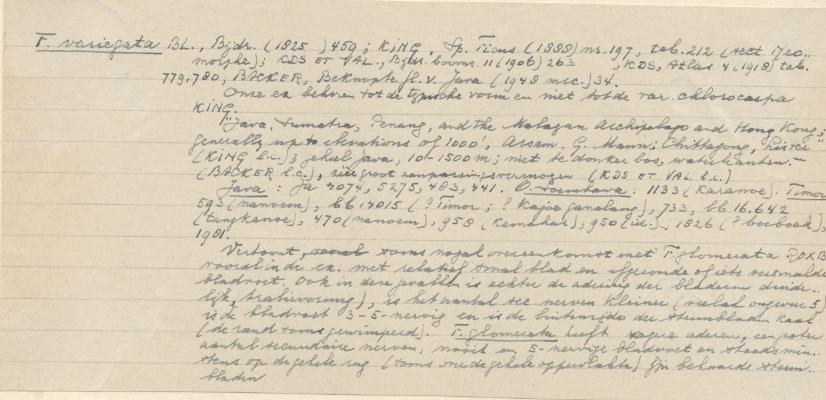 F. variegata BL., Bijdr. (1825) 459; KING, Sp. Ficus (1888) nr. 197, tab. 212 (sect.
morphe); KDS ET VAL., Bijdr. booms. 11 (1906) 263 ; KDS, Atlas 4 (1918) tab.
779, 780; BACKER, Beknopte fl. v. Java (1948 msc.) 34.
Onze ex behoren tot de typische vorm en niet tot de var. chlorocarpa
KING.
"Java, Sumatra, Penang, and the Malayan Archipelago and Hong Kong;
generally up to elevations of 1000', Assam. G. Mann; Chittagong,
(KING l.c.); geheel Java, 10-1500 m; niet te donker bos, waterkanten,
(BACKER l.c.), groot aanpassingsvermogen (KDS ET VAL. l.c.)
Java: Ja 4074, 5275, 483, 441. O. Soembawa: 1133 (Karawoe). Timor
593 (nanoem), bb 14015 (? Timor; ? Kajoe ganalang), 733, bb 16.642
(tangkanoe), 470 (nanoem), 958 (Kemahak), 950 (id.), 1826 (? boeboek),
1981.
Vertoont, soms nogal overeenkomst met F. glomerata ROXB
vooral in de ex. met relatief smal blad en afgeronde of iets versmalde
bladvoet. Ook in deze gevallen is echter de adering der bladeren duide-
lijk, is het aantal sec. nerven kleiner (veelal ongeveer 5)
is de bladvoet 3-5-nervig en is de buitenzijde der steunbladen kaal
(de rand soms gewimperd). F. glomerata heeft vagere aderen, een groter
aantal secundaire nerven, nooit een 5-nervige bladvoet en steeds min-
stens op de gehele rug (soms over de gehele oppervlakte) fijn behaarde steun-
bladen